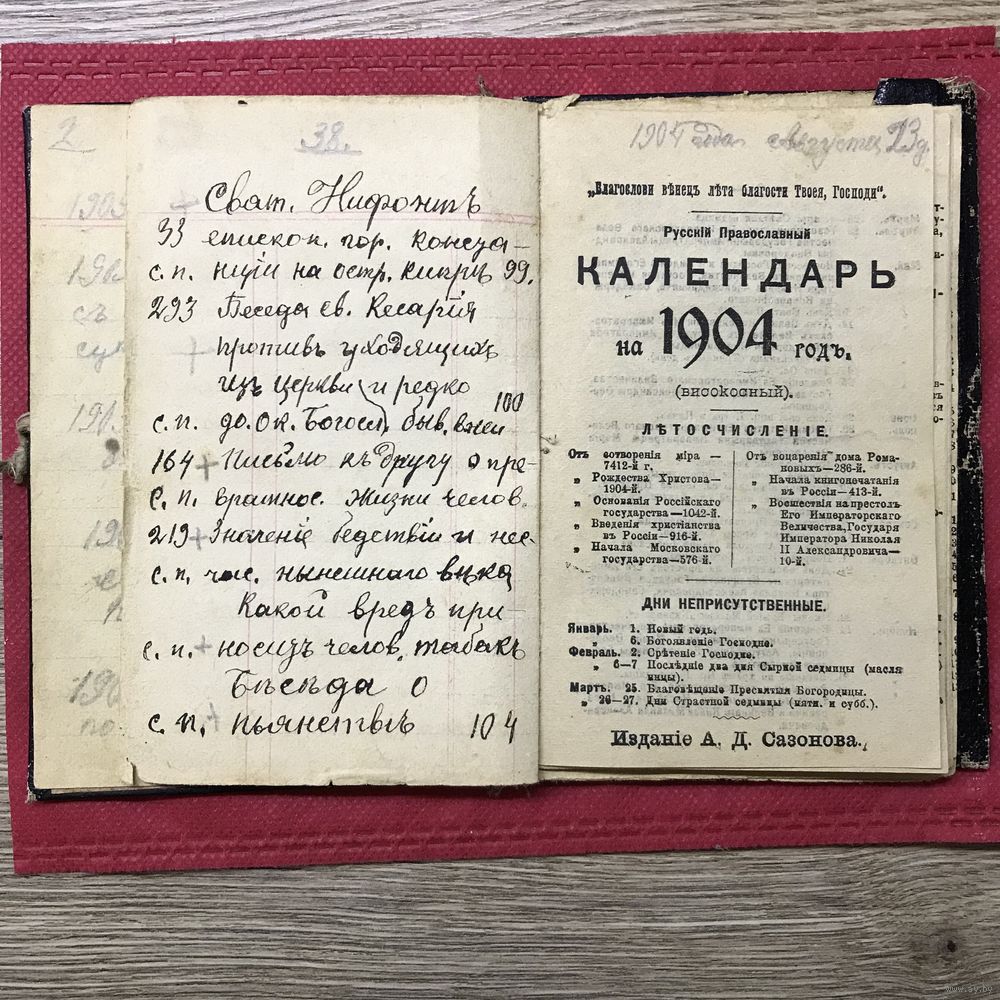 2
38.
Сват. Нифонтъ
33 епископ. гор. Констан-
с. п. ціи на остр. Кипръ 99.
293 Беседа св. Кесарій
противъ уходящихъ
изъ церкви и редко
100
с. п. до. ок. Богосл. быв. в ней
164 + Письмо къ другу о пре-
с. п. вратнос. жизни челов.
219 + Значеніе бедствій и нес-
с. п. час. нынешнаго века
Какой вредъ при-
с. п. + носитъ челов. табакъ
Бѣсѣда о
с. п. пьянствѣ 104
1904 года Августа 23 д.
„Благослови вѣнецъ лѣта благости Твоея, Господи“.
Русскій Православный
КАЛЕНДАРЬ
на 1904 годъ.
(високосный).
ЛѢТОСЧИСЛЕНІЕ.
Отъ сотворенія міра —
7412-й г.
„ Рождества Христова—
1904-й.
„ Основанія Россійскаго
государства—1042-й.
„ Введенія христіанства
въ Россіи—916-й.
„ Начала Московскаго
государства—576-й.
Отъ воцаренія дома Рома-
новыхъ—286-й.
„ Начала книгопечатанія
въ Россіи—413-й.
„ Восшествія на престолъ
Его Императорскаго
Величества, Государя
Императора Николая
II Александровича—
10-й.
ДНИ НЕПРИСУТСТВЕННЫЕ.
Январь. 1. Новый годъ.
„ 6. Богоявленіе Господне.
Февраль. 2. Срѣтеніе Господне.
„ 6—7 Послѣдніе два дня Сырной седмицы (масля
ницы).
Мартъ. 25. Благовѣщаніе Пресвятыя Богородицы.
„ 26—27. Дни Страстной седмицы (пятн. и субб.).
Изданіе А. Д. Сазонова.
www.ay.by